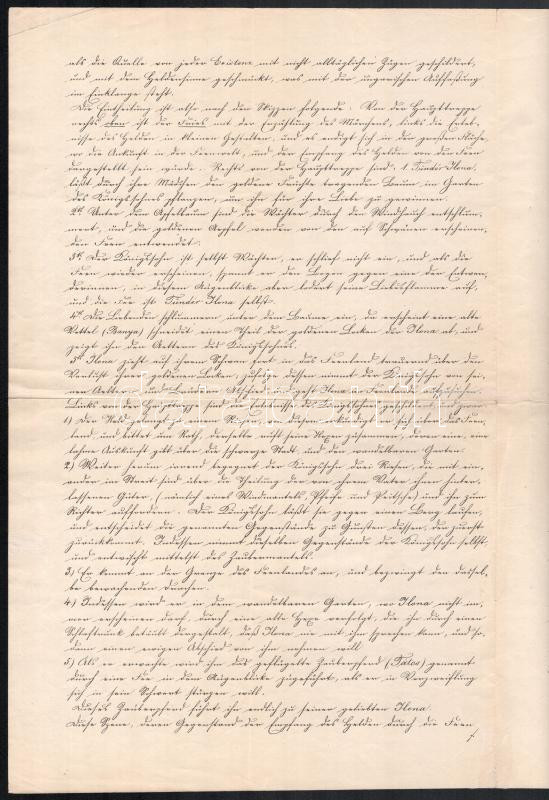 als die Quelle von jeder Existenz mit nicht alltäglichen Zügen geschildert,
und mit dem Heldensinne geschmückt, was mit der ungarischen Auffaßung
im Einklange steht.
Die Eintheilung ist also nach den Skizzen folgende: Von der Haupttreppe
rechts oben ist der Fries mit der Erzählung des Märchens, links die Erleb-
nisse des Helden in kleinen Gestalten, und es endigt sich in der großen Nische,
wo die Ankunft in der Feenwelt, und der Empfang des Helden von den Feen
dargestellt sein würde. Rechts von der Haupttreppe sind: 1. Tündér Ilona,
läßt durch ihre Mädchen den goldene Früchte tragenden Baum im Garten
des Königssohnes pflanzen, um ihn für ihre Liebe zu gewinnen.
2tes Unter dem Apfelbaum sind die Wächter durch den Windhauch entschlum-
mert, und die goldenen Äpfel werden von den auf Schwänen erscheinenden
Feen entwendet.
3tes Der Königssohn ist selbst Wächter, er schlief nicht ein, und als die
Feen wieder erscheinen, spannt er den Bogen gegen eine der Entwen-
derinnen, in diesem Augenblicke aber lodert seine Liebesflamme auf,
und die Fee ist Tündér Ilona selbst.
4tes Die Liebenden schlummern unter dem Baume ein, da erscheint eine alte
Vettel (Banya) schneidet einen Theil der goldenen Locken der Ilona ab, und
zeigt ihn den Aeltern des Königssohnes.
5tes Ilona zieht auf ihrem Schwan fort in das Feenland trauernd über den
Verlust ihrer goldenen Locken, zufolge dessen nimmt der Königssohn von sei-
nen Aeltern und Bruder Abschied und geht Ilona in Feenland aufzusuchen.
Links von der Haupttreppe sind die Erlebnisse des Königssohnes
1) Der Held gelangt zu einem Riesen, von diesem erkundigt er sich über das Feen-
land, und bittet um Rath, derselbe ruft seine Hexen zusammen, deren eine, eine
lahme Auskunft gibt über die schwarze Stadt und den wandelbaren Garten.
2) Weiter herum irrend begegnet der Königssohn drei Riesen, die mit ein-
ander im Streit sind über die Theilung der von ihrem Vater ihnen hinter-
lassenen Güter, (nämlich eines Windmantels, Pfeife und Peitsche) und ihn zum
Richter auffordern. Der Königssohn läßt sie gegen einen Berg laufen,
und entscheidet die genannten Gegenstände zu Gunsten dessen, der zuerst
zurückkommt. Indessen nimmt dieselben Gegenstände der Königssohn selbst,
und entwischt mittelst des Zaubermantels.
3) Er kommt an der Grenze des Feenlandes an, und bezwingt den dassel-
be bewachenden Drachen.
4) Indessen wird er in dem wandelbaren Garten, wo Ilona nicht im-
mer erscheinen darf, durch eine alte Hexe verfolgt, die ihn durch einen
Schlaftrunk betäubt dergestalt, daß Ilona nie mit ihm sprechen kann, und so-
dann einen ewigen Abschied von ihm nehmen will.
5) Als er erwachte wird ihm das geflügelte Zauberpferd (Tátos) genannt
durch eine Fee in dem Augenblicke zugeführt, als er in Verzweiflung
sich in sein Schwert stürzen will.
Dieses Zauberpferd führt ihn endlich zu seiner geliebten Ilona.
Diese Szene, deren Gegenstand der Empfang des Helden durch die Feen